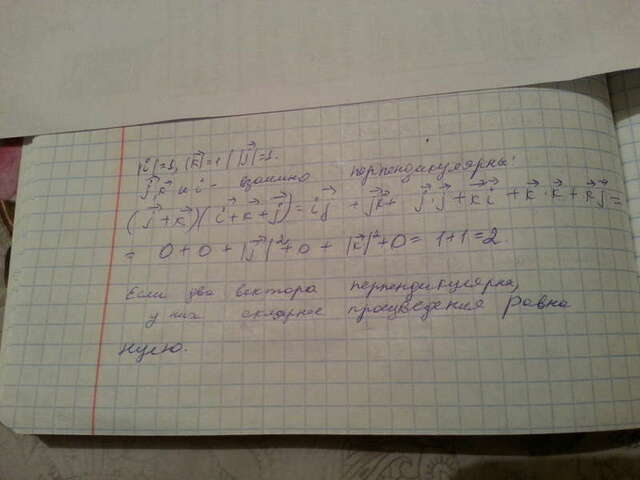 |i⃗|=1, |k⃗|=1, |j⃗|=1.
j⃗, k⃗ и i⃗ - взаимно перпендикулярны.
(j⃗+k⃗)(i⃗+k⃗+j⃗)= i⃗j⃗ + j⃗k⃗+ j⃗·j⃗+k⃗i⃗+k⃗·k⃗+k⃗j⃗=
= 0+0+|j⃗|²+0+|k⃗|²+0=1+1=2.
Если два вектора перпендикулярна,
у них скалярное произведения равна
нулю.